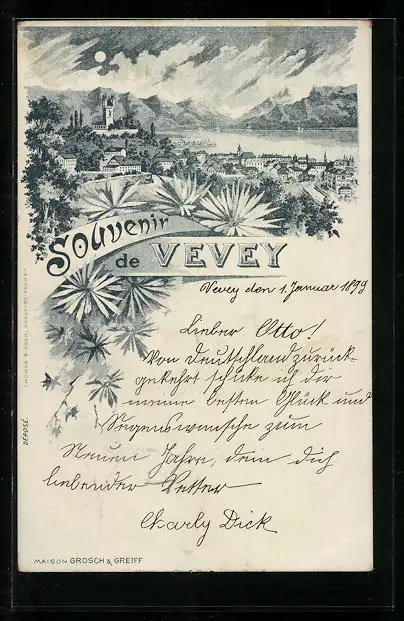 Souvenir
de VEVEY
Vevey den 1. Januar 1899
Lieber Otto!
Von Deutschland zurück-
gekehrt schicke ich dir
meine besten Glück und
Segenswünsche zum
Neuen Jahre, dein dich
liebender Vetter
Charly Dick
DÉPOSÉ.
MAISON GROSCH & GREIFF